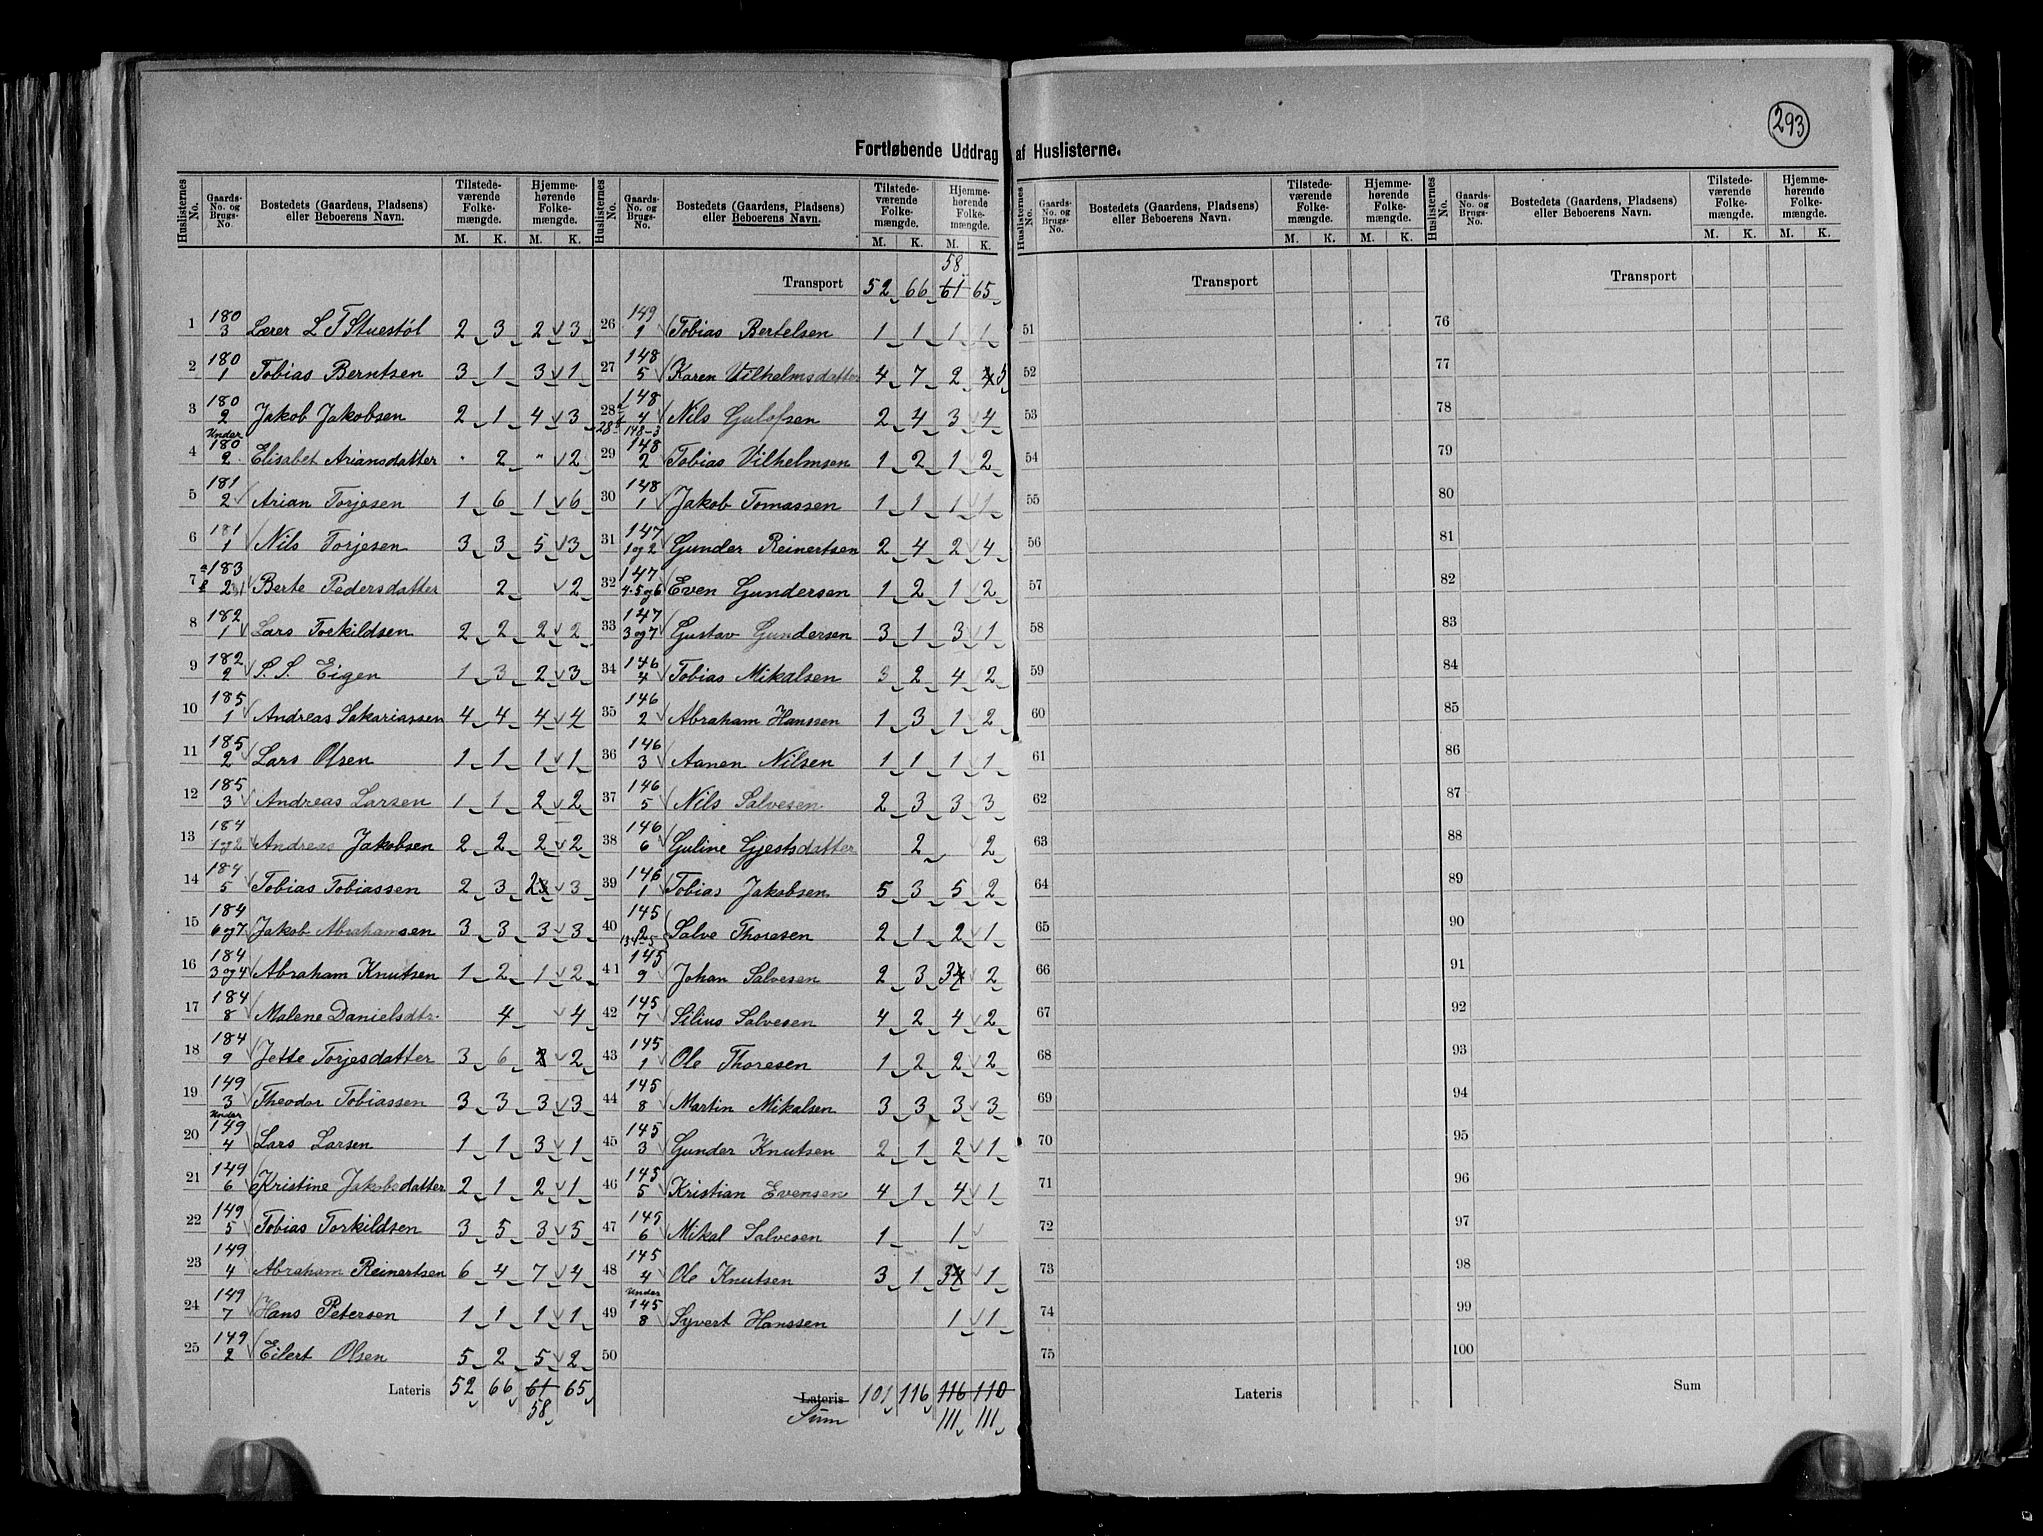 293
Fortløbende Uddrag af Huslisterne.
Huslisternes No. | Gaards-No. og Brugs-No. | Bostedets (Gaardens, Pladsens) eller Beboerens Navn. | Tilstedeværende Folkemængde. M. K. | Hjemmehørende Folkemængde. M. K.
1 180/3 Lærer L T Stuestøl 2 3 2 3
2 180/1 Tobias Berntsen 3 1 3 1
3 180/2 Jakob Jakobsen 2 1 4 3
4 Under 180/2 Elisabet Ariansdatter " 2 " 2
5 181/2 Arian Torjesen 1 6 1 6
6 181/1 Nils Torjesen 3 3 5 3
7 183 Berte Pedersdatter 2 2
8 182/1 Lars Torkildsen 2 2 2 2
9 182/2 S. S. Eigen 1 3 2 3
10 185/1 Andreas Sakariassen 4 4 4 4
11 185/2 Lars Olsen 1 1 1 1
12 185/3 Andreas Larsen 1 1 2 2
13 184/1 og 2 Andreas Jakobsen 2 2 2 2
14 184/5 Tobias Tobiassen 2 3 2 3
15 184/6 og 7 Jakob Abrahamsen 3 3 3 3
16 184/3 og 4 Abraham Knutsen 1 2 1 2
17 184/8 Malene Danielsdtr. 4 4
18 184/9 Jette Torjesdatter 3 6 2
19 149/3 Theodor Tobiassen 3 3 3 3
20 Under 149/4 Lars Larsen 1 1 3 1
21 149/6 Kristine Jakobsdatter 2 1 2 1
22 149/5 Tobias Torkildsen 3 5 3 5
23 149/4 Abraham Reinertsen 6 4 7 4
24 149/7 Hans Petersen 1 1 1 1
25 149/2 Eilert Olsen 5 2 5 2
Lateris 52 66 61 65
58
Huslisternes No. | Gaards-No. og Brugs-No. | Bostedets (Gaardens, Pladsens) eller Beboerens Navn. | Tilstedeværende Folkemængde. M. K. | Hjemmehørende Folkemængde. M. K.
58
Transport 52 66 61 65
26 149/1 Tobias Bertelsen 1 1 1 1
27 148/5 Karen Vilhelmsdatter 4 7 2 4 5
28 148/4 148-3 Nils Gulofsen 2 4 3 4
29 148/2 Tobias Vilhelmsen 1 2 1 2
30 148/1 Jakob Tomassen 1 1 1 1
31 147/1 og 2 Gunder Reinertsen 2 4 2 4
32 147/4.5 og 6 Even Gundersen 1 2 1 2
33 147/3 og 7 Gustav Gundersen 3 1 3 1
34 146/4 Tobias Mikalsen 3 2 4 2
35 146/2 Abraham Hanssen 1 3 1 2
36 146/3 Aanen Nilsen 1 1 1 1
37 146/5 Nils Salvesen 2 3 3 3
38 146/6 Guline Gjestsdatter 2 2
39 146/1 Tobias Jakobsen 5 3 5 2
40 145/2 Salve Thoresen 2 1 2 1
41 145/9 Johan Salvesen 2 3 3 4 2
42 145/7 Silius Salvesen 4 2 4 2
43 145/1 Ole Thoresen 1 2 2 2
44 145/8 Martin Mikalsen 3 3 3 3
45 145/3 Gunder Knutsen 2 1 2 1
46 145/5 Kristian Evensen 4 1 4 1
47 145/6 Mikal Salvesen 1 1
48 145/4 Ole Knutsen 3 1 3 4 1
49 Under 145/8 Syvert Hanssen 1 1
50
Lateris 101 116 116 110
Sum 111 111
Huslisternes No. | Gaards-No. og Brugs-No. | Bostedets (Gaardens, Pladsens) eller Beboerens Navn. | Tilstedeværende Folkemængde. M. K. | Hjemmehørende Folkemængde. M. K.
Transport
51
52
53
54
55
56
57
58
59
60
61
62
63
64
65
66
67
68
69
70
71
72
73
74
75
Lateris
Huslisternes No. | Gaards-No. og Brugs-No. | Bostedets (Gaardens, Pladsens) eller Beboerens Navn. | Tilstedeværende Folkemængde. M. K. | Hjemmehørende Folkemængde. M. K.
Transport
76
77
78
79
80
81
82
83
84
85
86
87
88
89
90
91
92
93
94
95
96
97
98
99
100
Sum